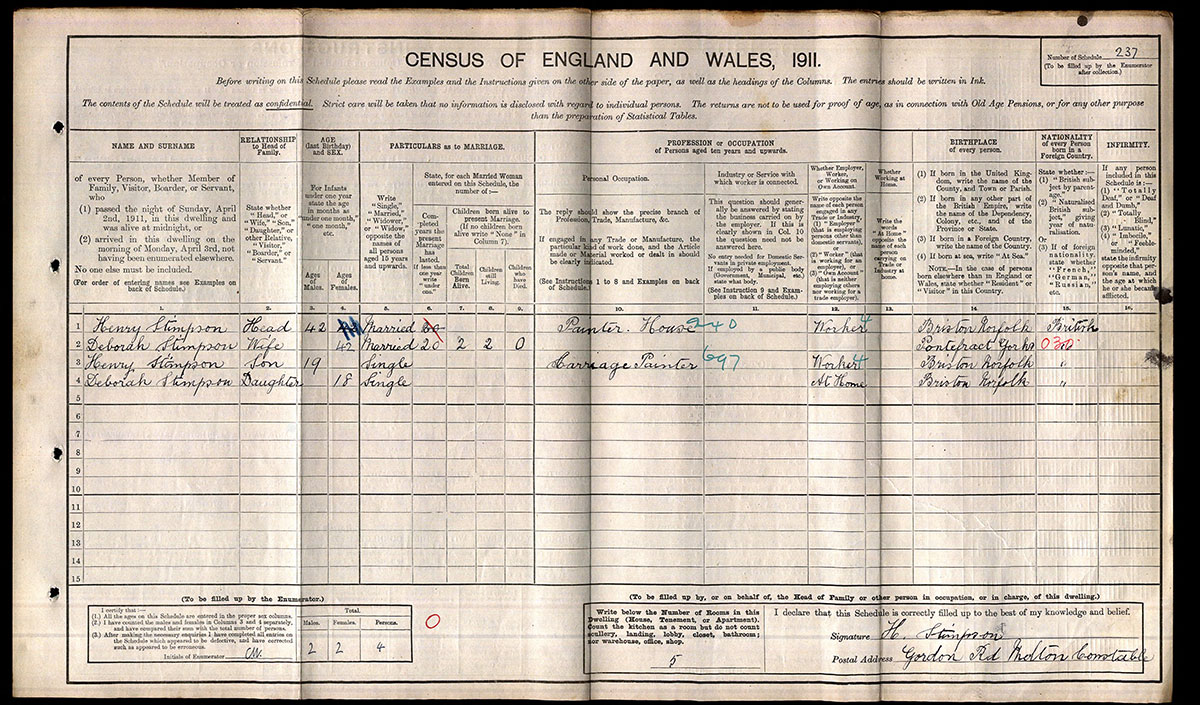 Number of Schedule 237
(To be filled up by the Enumerator
after collection.)
CENSUS OF ENGLAND AND WALES, 1911.
Before writing on this Schedule please read the Examples and the Instructions given on the other side of the paper, as well as the headings of the Columns. The entries should be written in Ink.
The contents of the Schedule will be treated as confidential. Strict care will be taken that no information is disclosed with regard to individual persons. The returns are not to be used for proof of age, as in connection with Old Age Pensions, or for any other purpose
than the preparation of Statistical Tables.
NAME AND SURNAME
of every Person, whether Member of
Family, Visitor, Boarder, or Servant,
who
(1) passed the night of Sunday, April
2nd, 1911, in this dwelling and
was alive at midnight, or
(2) arrived in this dwelling on the
morning of Monday, April 3rd, not
having been enumerated elsewhere.
No one else must be included.
(For order of entering names see Examples on
back of Schedule.)
RELATIONSHIP
to Head of
Family.
State whether
"Head," or
"Wife," "Son,"
"Daughter," or
other Relative,
"Visitor,"
"Boarder," or
"Servant."
AGE
(last Birthday)
and SEX.
For Infants
under one year
state the age
in months as
"under one month,"
"one month,"
etc.
Ages
of
Males.
Ages
of
Females.
PARTICULARS as to MARRIAGE.
Write
"Single,"
"Married,"
"Widower,"
or "Widow,"
opposite the
names of
all persons
aged 15 years
and upwards.
State, for each Married Woman
entered on this Schedule, the
number of :—
Com-
pleted
years the
present
Marriage
has
lasted.
If less than
one year
write
"under
one."
Children born alive to
present Marriage.
(If no children born
alive write "None" in
Column 7).
Total
Children
Born
Alive.
Children
still
Living.
Children
who
have
Died.
PROFESSION or OCCUPATION
of Persons aged ten years and upwards.
Personal Occupation.
The reply should show the precise branch of
Profession, Trade, Manufacture, &c.
If engaged in any Trade or Manufacture, the
particular kind of work done, and the Article
made or Material worked or dealt in should
be clearly indicated.
(See Instructions 1 to 8 and Examples on back
of Schedule.)
Industry or Service with
which worker is connected.
This question should gener-
ally be answered by stating
the business carried on by
the employer. If this is
clearly shown in Col. 10
the question need not be
answered here.
No entry needed for Domestic Ser-
vants in private employment.
If employed by a public body
(Government, Municipal, etc.)
state what body.
(See Instruction 9 and Exam-
ples on back of Schedule.)
Whether Employer,
Worker,
or Working on
Own Account.
Write opposite the
name of each person
engaged in any
Trade or Industry,
(1) "Employer"
(that is employing
persons other than
domestic servants),
or
(2) "Worker" (that
is working for an
employer), or
(3) "Own Account"
(that is neither
employing others
nor working for a
trade employer).
Whether
Working at
Home.
Write the
words
"At Home"
opposite the
name of each
person
carrying on
Trade or
Industry at
home.
BIRTHPLACE
of every person.
(1) If born in the United King-
dom, write the name of the
County, and Town or Parish.
(2) If born in any other part of
the British Empire, write
the name of the Dependency,
Colony, etc., and of the
Province or State.
(3) If born in a Foreign Country,
write the name of the Country.
(4) If born at sea, write "At Sea."
NOTE.—In the case of persons
born elsewhere than in England or
Wales, state whether "Resident" or
"Visitor" in this Country.
NATIONALITY
of every Person
born in a
Foreign Country.
State whether :—
(1) "British sub-
ject by parent-
age,"
(2) "Naturalised
British sub-
ject," giving
year of natu-
ralisation.
Or
(3) If of foreign
nationality,
state whether
"French,"
"German,"
"Russian,"
etc.
INFIRMITY.
If any person
included in this
Schedule is :—
(1) "Totally
Deaf," or "Deaf
and Dumb,"
(2) "Totally
Blind,"
(3) "Lunatic,"
(4) "Imbecile,"
or "Feeble-
minded,"
state the infirmity
opposite that per-
son's name, and
the age at which
he or she became
afflicted.
1. 2. 3. 4. 5. 6. 7. 8. 9. 10. 11. 12. 13. 14. 15. 16.
1 Henry Stimpson Head 42 Married 20 Painter. House 240 Worker 4 Briston Norfolk British
2 Deborah Stimpson Wife 42 Married 20 2 2 0 Pontefract Yorks 030 "
3 Henry Stimpson Son 19 Single Carriage Painter 697 Worker 4 Briston Norfolk "
4 Deborah Stimpson Daughter 18 Single At Home Briston Norfolk "
5
6
7
8
9
10
11
12
13
14
15
(To be filled up by the Enumerator.)
I certify that :—
(1.) All the ages on this Schedule are entered in the proper sex columns.
(2.) I have counted the males and females in Columns 3 and 4 separately,
and have compared their sum with the total number of persons.
(3.) After making the necessary enquiries I have completed all entries on
the Schedule which appeared to be defective, and have corrected
such as appeared to be erroneous.
Initials of Enumerator
Total.
Males. Females. Persons.
2 2 4
0
(To be filled up by, or on behalf of, the Head of Family or other person in occupation, or in charge, of this dwelling.)
Write below the Number of Rooms in this
Dwelling (House, Tenement, or Apartment).
Count the kitchen as a room but do not count
scullery, landing, lobby, closet, bathroom;
nor warehouse, office, shop.
5
I declare that this Schedule is correctly filled up to the best of my knowledge and belief.
Signature H. Stimpson
Postal Address Gordon Rd Melton Constable